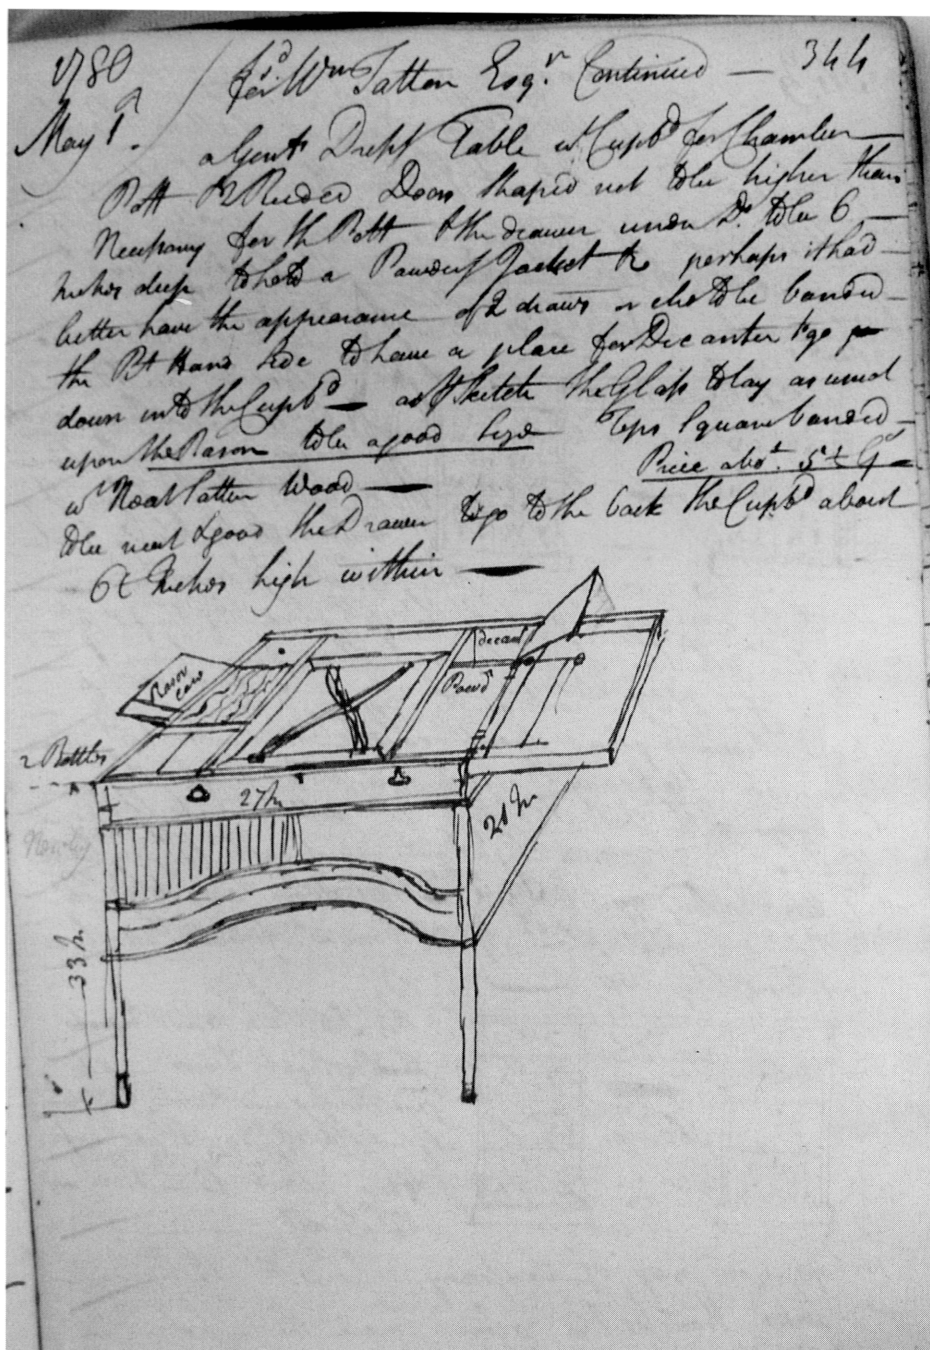 1780 for Wm Tatton Esqr. Continued — 344
May 1st. a Gents Dresst Table wt Cupbd for Chamber —
Pott Reeded Doors shaped not tobe higher than
Necessary for the Pott & the drawer under Do. tobe 6 —
Inches deep tohold a Powdg Jacket &c perhaps it had —
better have the appearance of 2 draws or else tobe banded —
the Rt Hand side tohave a place for Decanter to go
down into the Cupbd — as pr Sketch the Glass tolay as usual
upon the Rasors tobe a good size Legs Square banded —
wt Neat Satten Wood — Price abot. 5½ Gs —
tobe neat & good the Drawer to go to the back the Cupbd about
6½ Inches high within —
decanr
Rasor
case
Powdr
2 Bottles
27 In
21 In
33 In